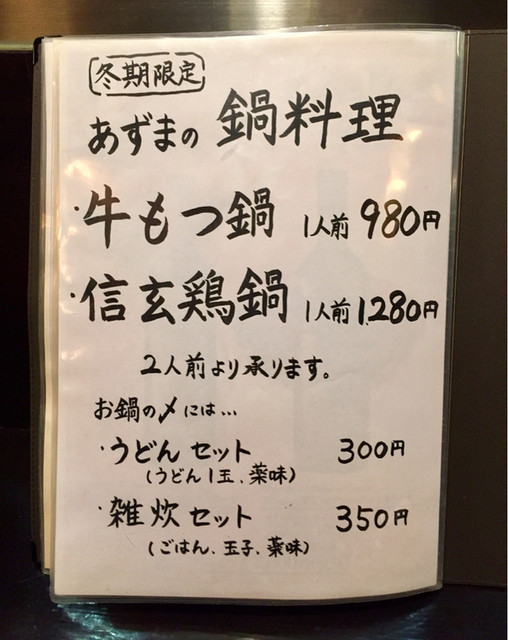 冬期限定
あずまの 鍋料理
・牛もつ鍋 1人前 980円
・信玄鶏鍋 1人前 1,280円
2人前より承ります。
お鍋の〆には…
・うどんセット 300円
(うどん1玉、薬味)
・雑炊セット 350円
(ごはん、玉子、薬味)